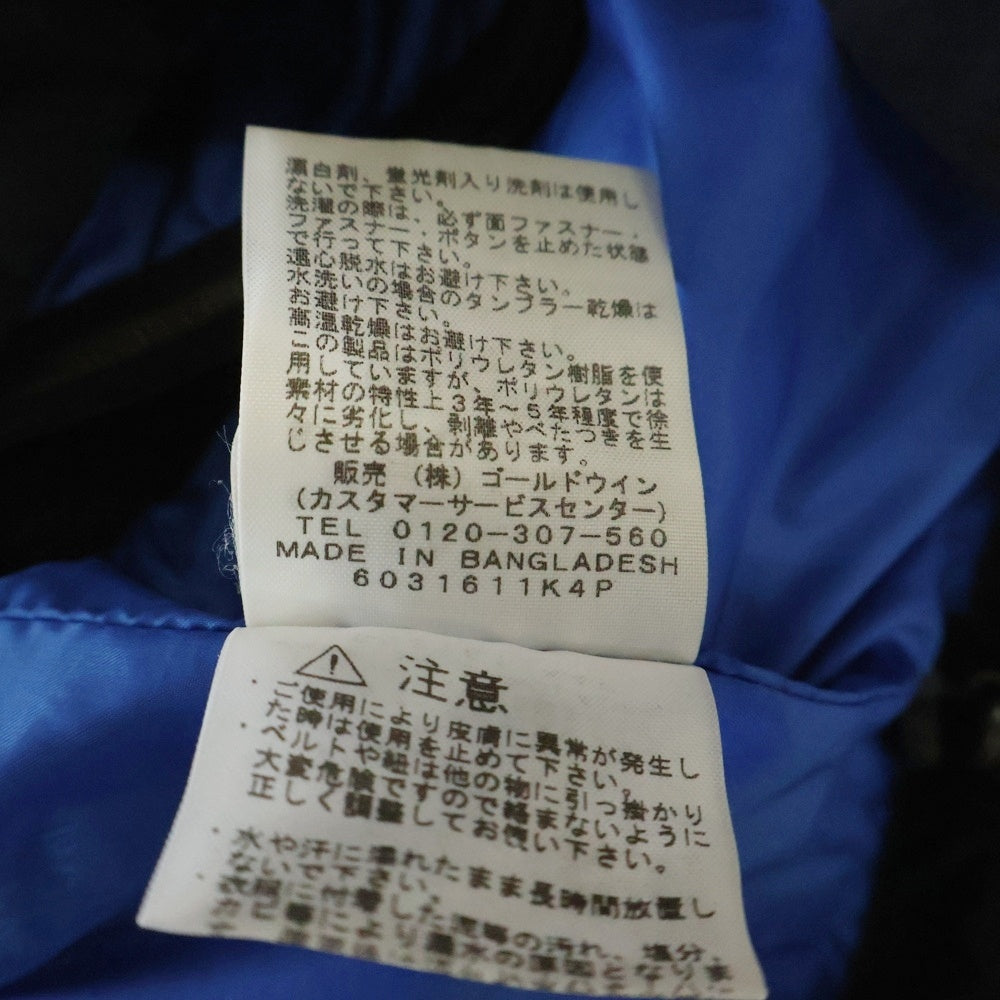 漂白剤、蛍光剤入り洗剤は使用し
ないで下さい。
洗濯の際は、必ず面ファスナー・
ファスナー・ボタンを止めた状態
で行って下さい。
遠心脱水はお避け下さい。
水洗いの場合のタンブラー乾燥は
お避け下さい。
高温乾燥はお避け下さい。
この製品はポリウレタン樹脂を使
用していますが、ポリウレタンは
素材の特性上3年～5年程度で徐
々に劣化し、剥離やべたつきを生
じさせる場合があります。
販売 (株)ゴールドウイン
(カスタマーサービスセンター)
TEL 0120-307-560
MADE IN BANGLADESH
6031611K4P
注意
・ご使用により皮膚に異常が発生し
た時は使用を止めて下さい。
・ベルトや紐は他の物に引っ掛かり
大変危険ですので絡まないように
正しく調整してお使い下さい。
・水や汗に濡れたまま長時間放置し
ないで下さい。
・衣服に付着した泥等の汚れ、塩分、
カビ等により漏水の原因となりま